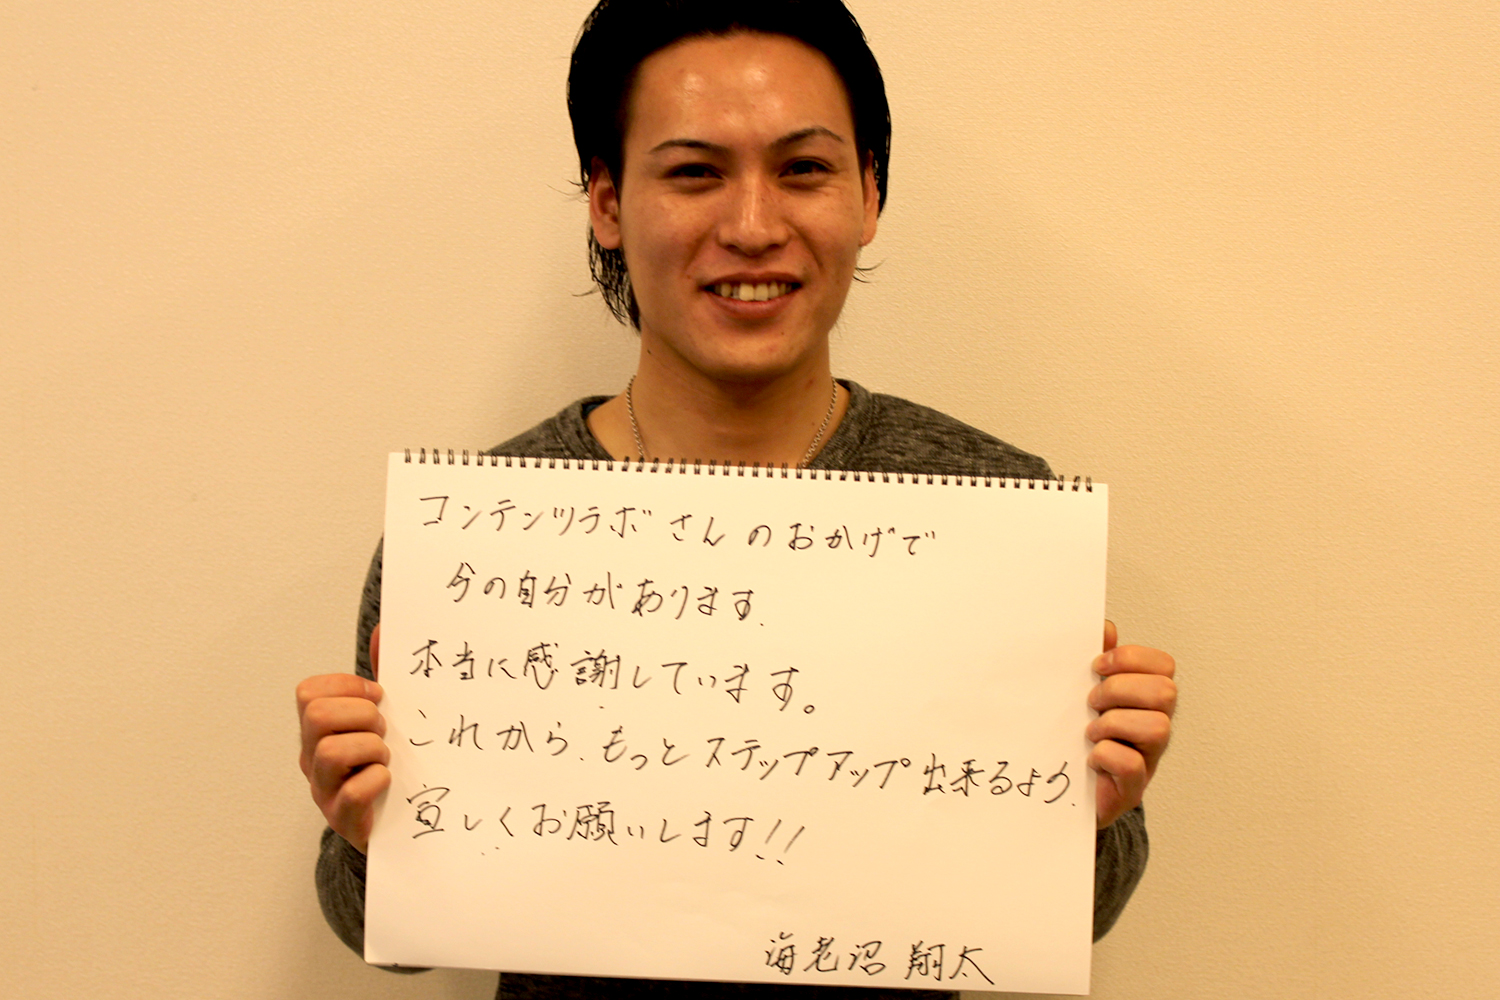 コンテンツラボさんのおかげで
今の自分があります.
本当に感謝しています。
これから、もっとステップアップ出来るよう、
宜しくお願いします!!
海老沼 翔太